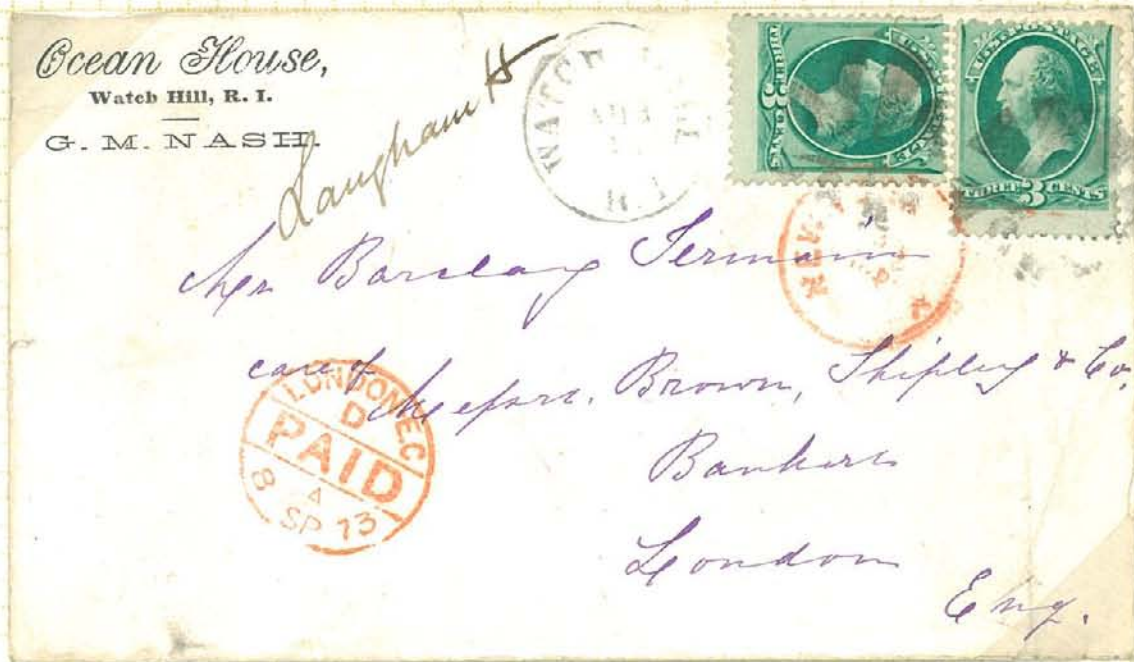 Ocean House,
Watch Hill, R. I.
G. M. NASH.
Langham H
WATCH HILL
AUG
R.I
U.S. POSTAGE
THREE 3 CENTS
U.S. POSTAGE
THREE 3 CENTS
NEW
Mr Barclay Jermain
care of Messrs. Brown, Shipley & Co,
Bankers
London
Eng.
LONDON.E.C
D
PAID
8 A
SP 73